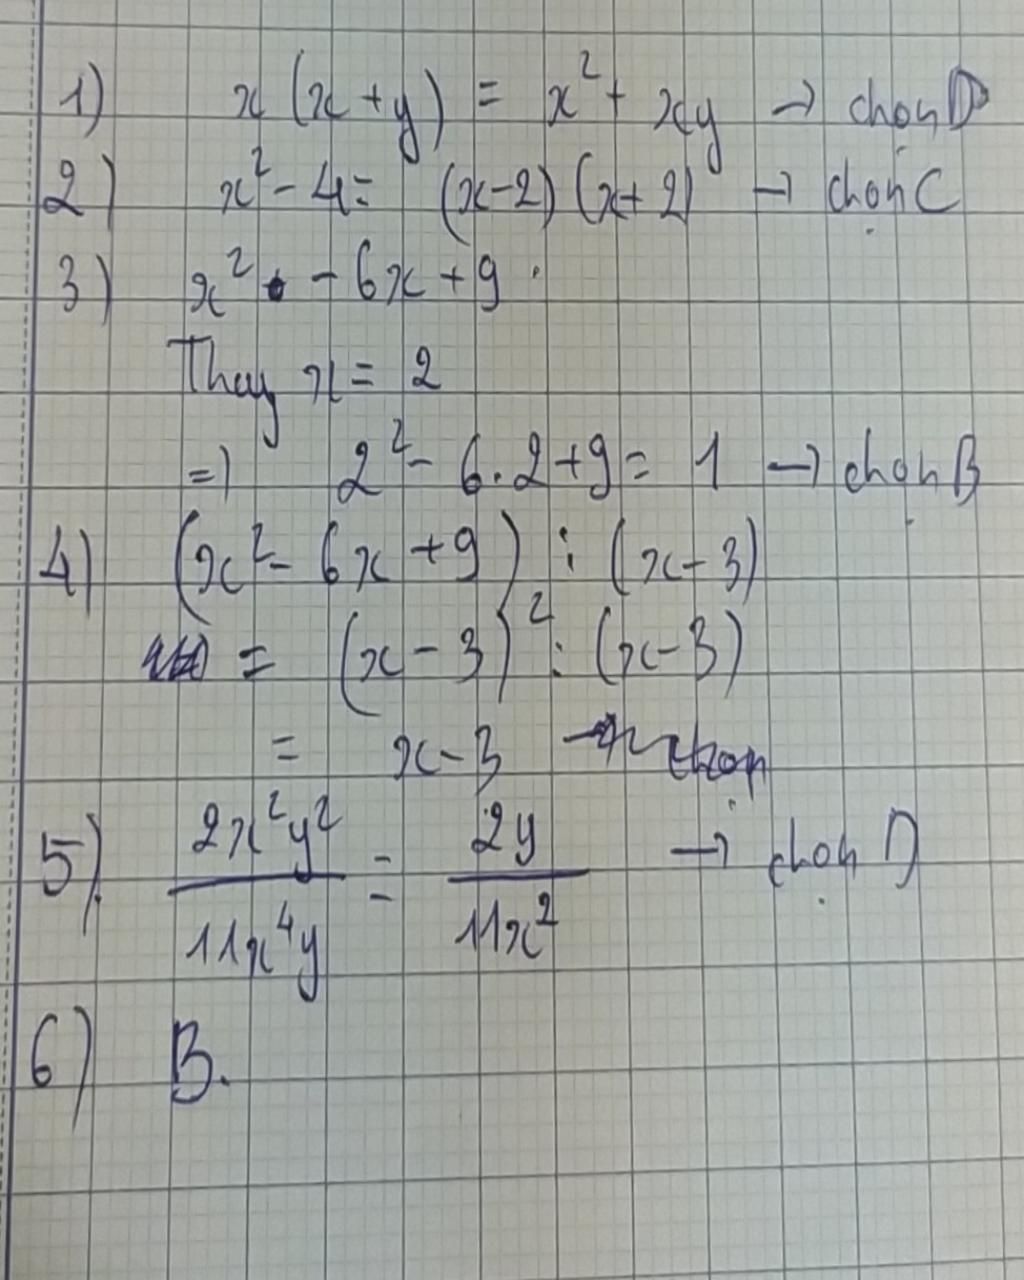 1) x (x + y) = x² + xy → chọn D
2) x² - 4 = (x-2) (x+2) → chọn C
3) x² - 6x + 9.
Thay x = 2
=) 2² - 6.2 + 9 = 1 → chọn B
4) (x² - 6x + 9) : (x - 3)
= (x - 3)² : (x - 3)
= x - 3 → chọn
5) 2x²y² / 11x⁴y = 2y / 11x² → chọn D
6) B.